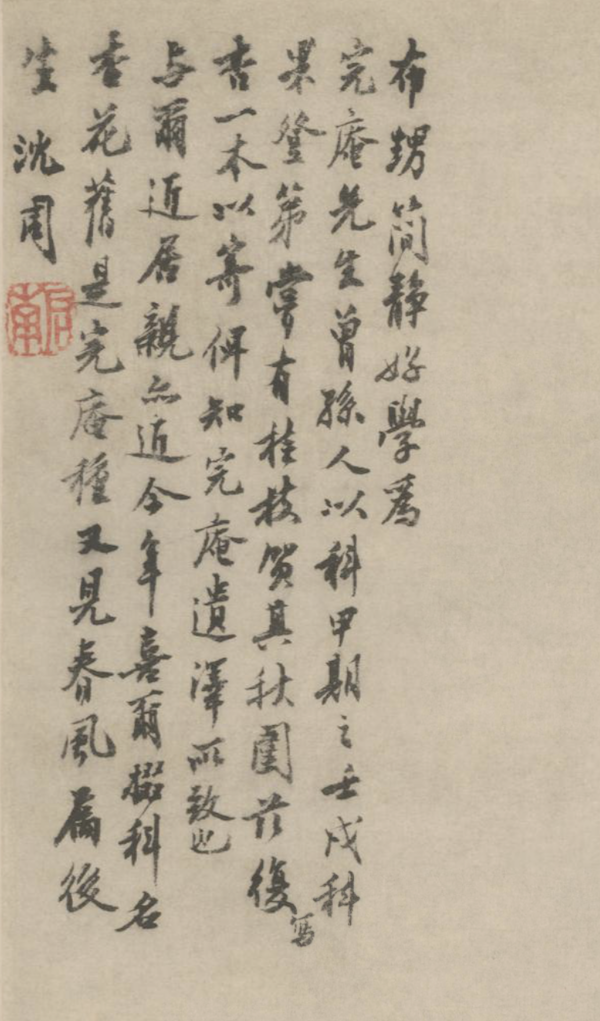 布甥簡靜好學爲
完庵先生曾孫人以科甲期之壬戌科
果登第嘗有桂枝賀其秋闈茲復寫
杏一本以寄俾知完庵遺澤所致也
与爾近居親亦近今年喜爾掇科名
杏花舊是完庵種又見春風屬後
生沈周
启南